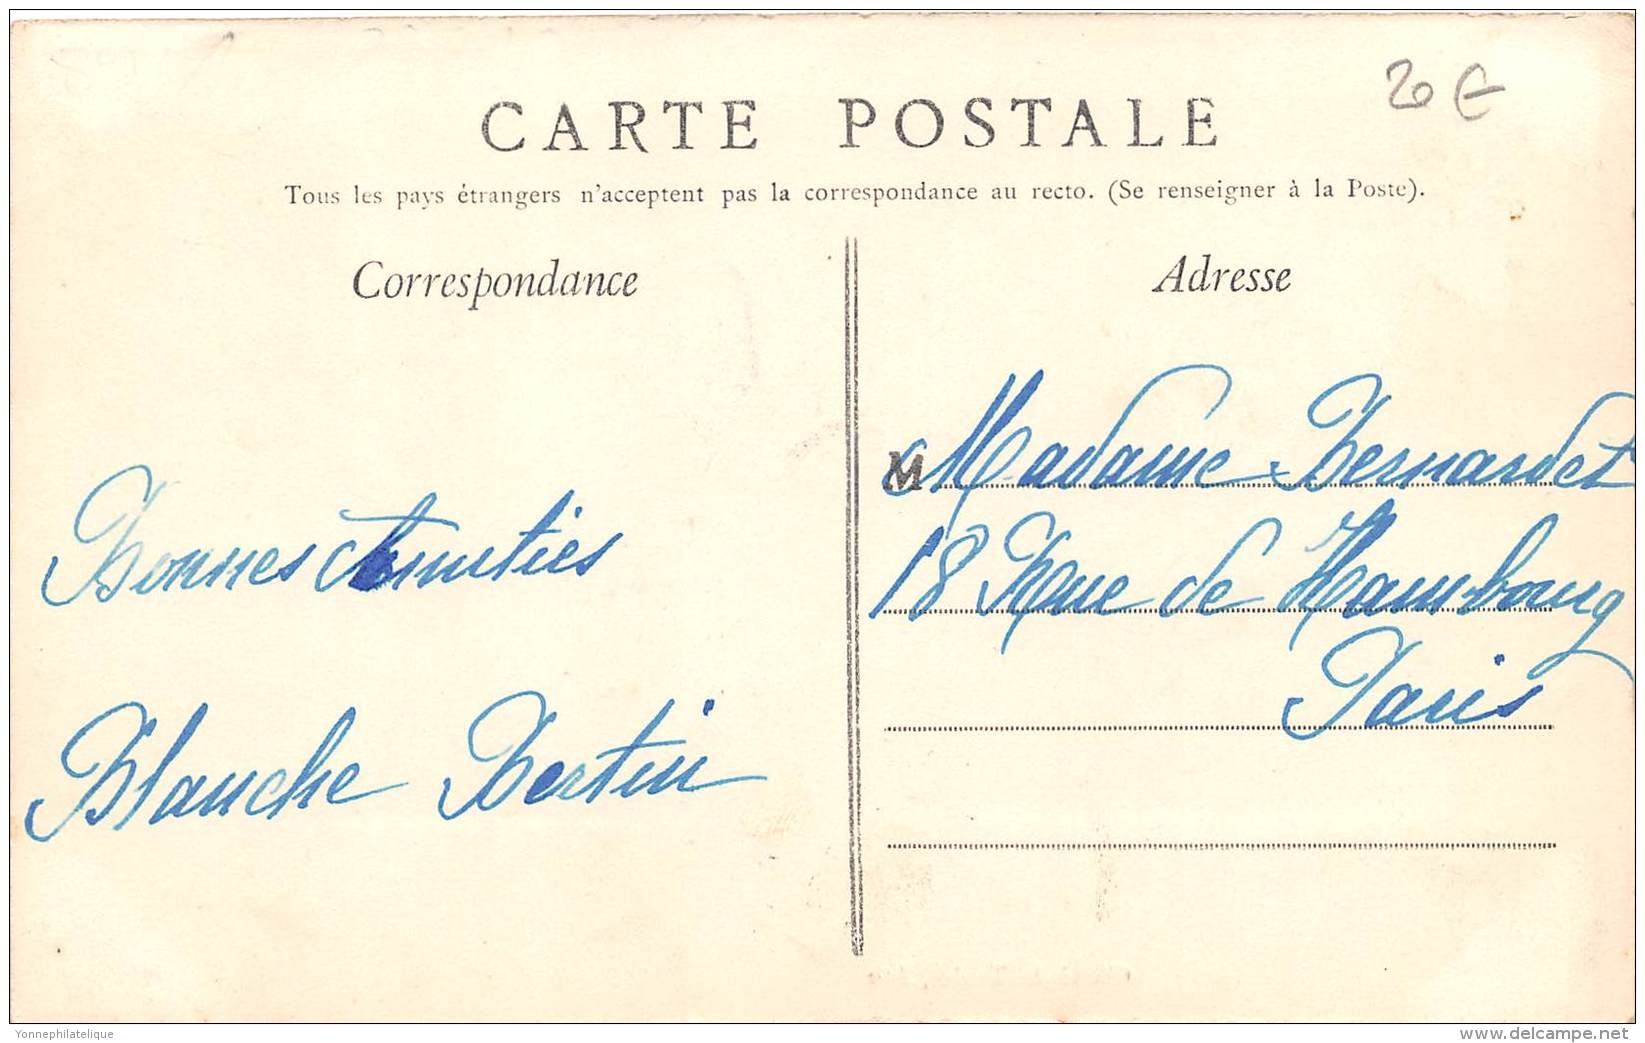 20 €
CARTE POSTALE
Tous les pays étrangers n'acceptent pas la correspondance au recto. (Se renseigner à la Poste).
Correspondance
Bonnes Amitiés
Blanche Bertin
Adresse
M Madame Bernardet
18 Rue de Hambourg
Paris
Yonnephilatelique
www.delcampe.net